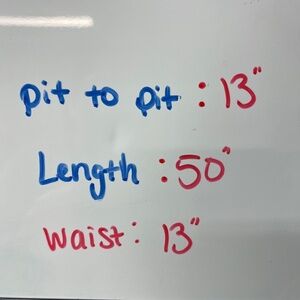 pit to pit : 13"
Length : 50"
waist: 13"